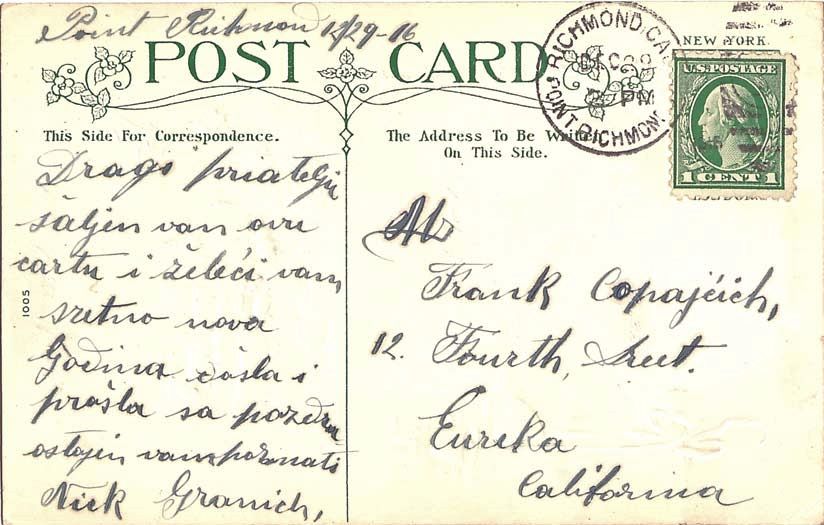 Point Richmod 12/29-16
POST CARD
RICHMOND, CA
DEC
PM
POINT RICHMON
NEW YORK.
U.S. POSTAGE
1 CENT 1
This Side For Correspondence.
The Address To Be Writte
On This Side.
Drago priatelju
šaljen van ovu
cartu i želeći vam
sretno nova
Godina došla i
prošla sa pozdra
ostajen vam poznati
Nick Granich,
1005
Mr
Frank Copajćich,
12. Fourth, Sreet.
Eureka
California